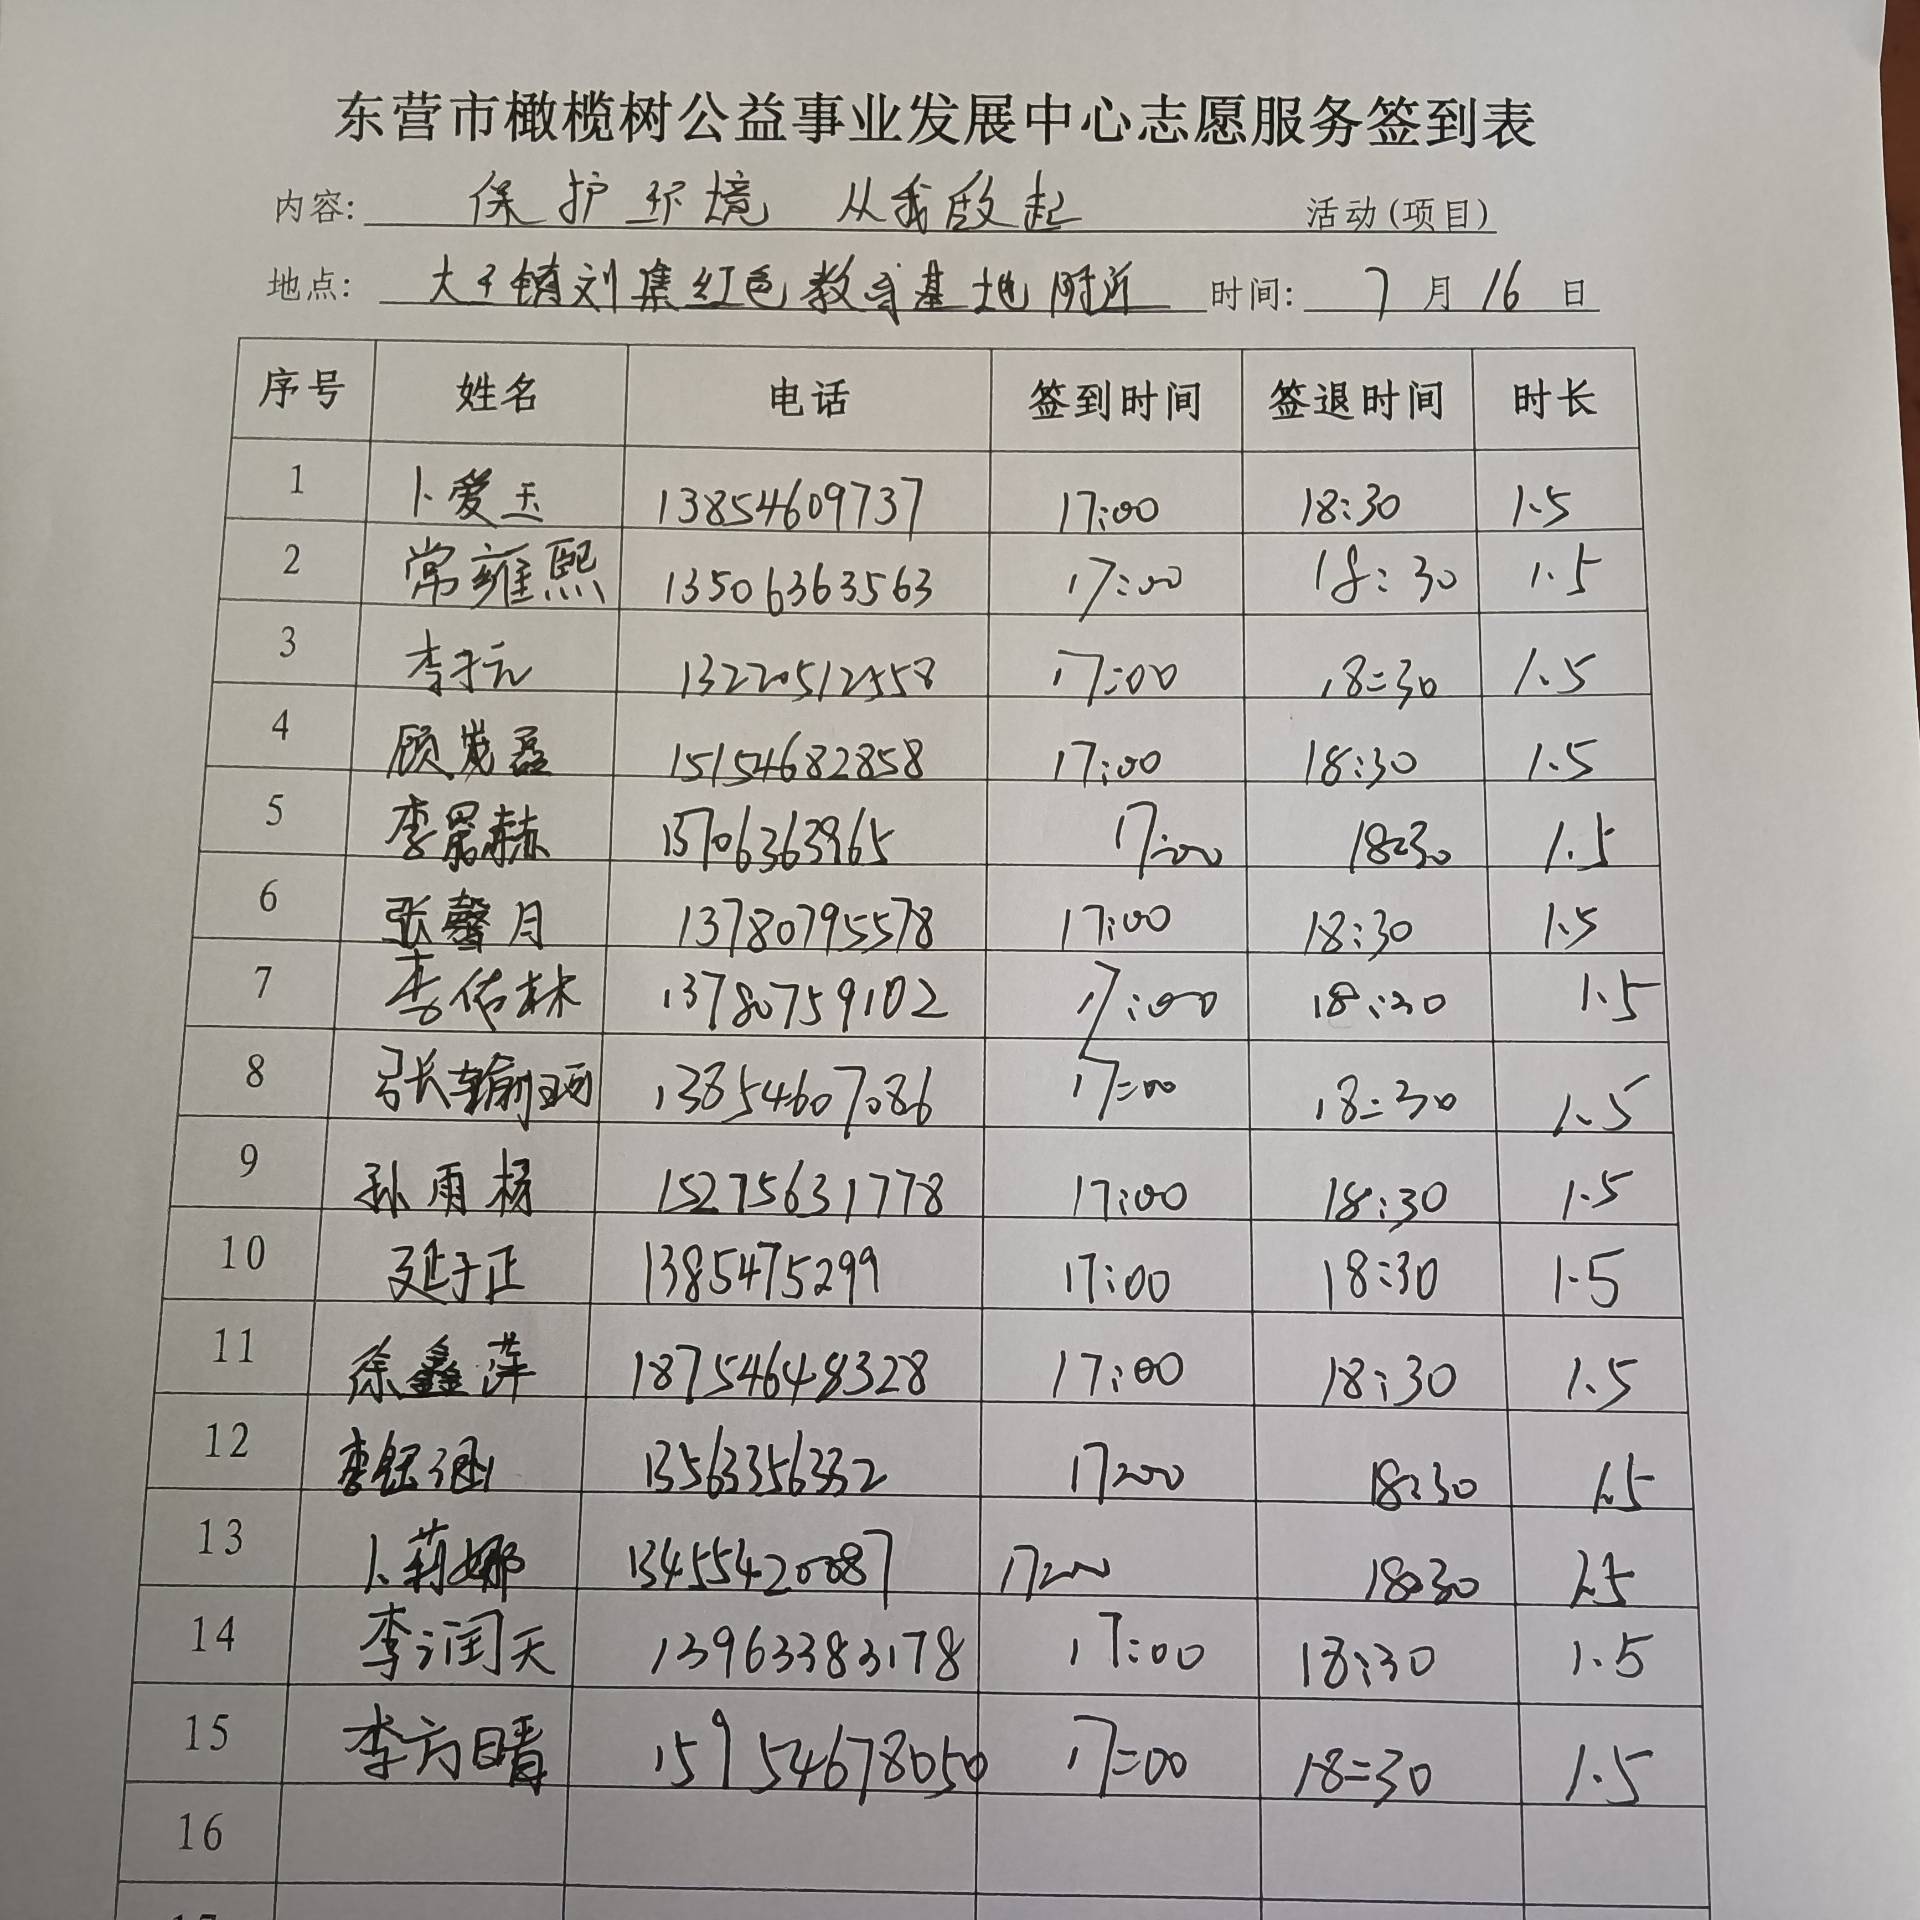 东营市橄榄树公益事业发展中心志愿服务签到表
内容: 保护环境 从我做起 活动(项目)
地点: 大王镇刘集红色教育基地附近 时间: 7月16日
序号 姓名 电话 签到时间 签退时间 时长
1 卜爱玉 13854609737 17:00 18:30 1.5
2 常雍熙 13506363563 17:00 18:30 1.5
3 李于元 17:00 18:30 1.5
4 15154682858 17:00 18:30 1.5
5 17:00 18:30 1.5
6 张馨月 13780795578 17:00 18:30 1.5
7 李佑林 13780759102 17:00 18:30 1.5
8 13854607086 17:00 18:30 1.5
9 孙雨杨 15275631778 17:00 18:30 1.5
10 延于正 1385475299 17:00 18:30 1.5
11 徐鑫萍 18754648328 17:00 18:30 1.5
12 李钰涵 13563356332 17:00 18:30 1.5
13 卜莉娜 13455420087 17:00 18:30 1.5
14 李润天 13963383178 17:00 18:30 1.5
15 李方晴 15954678050 17:00 18:30 1.5
16